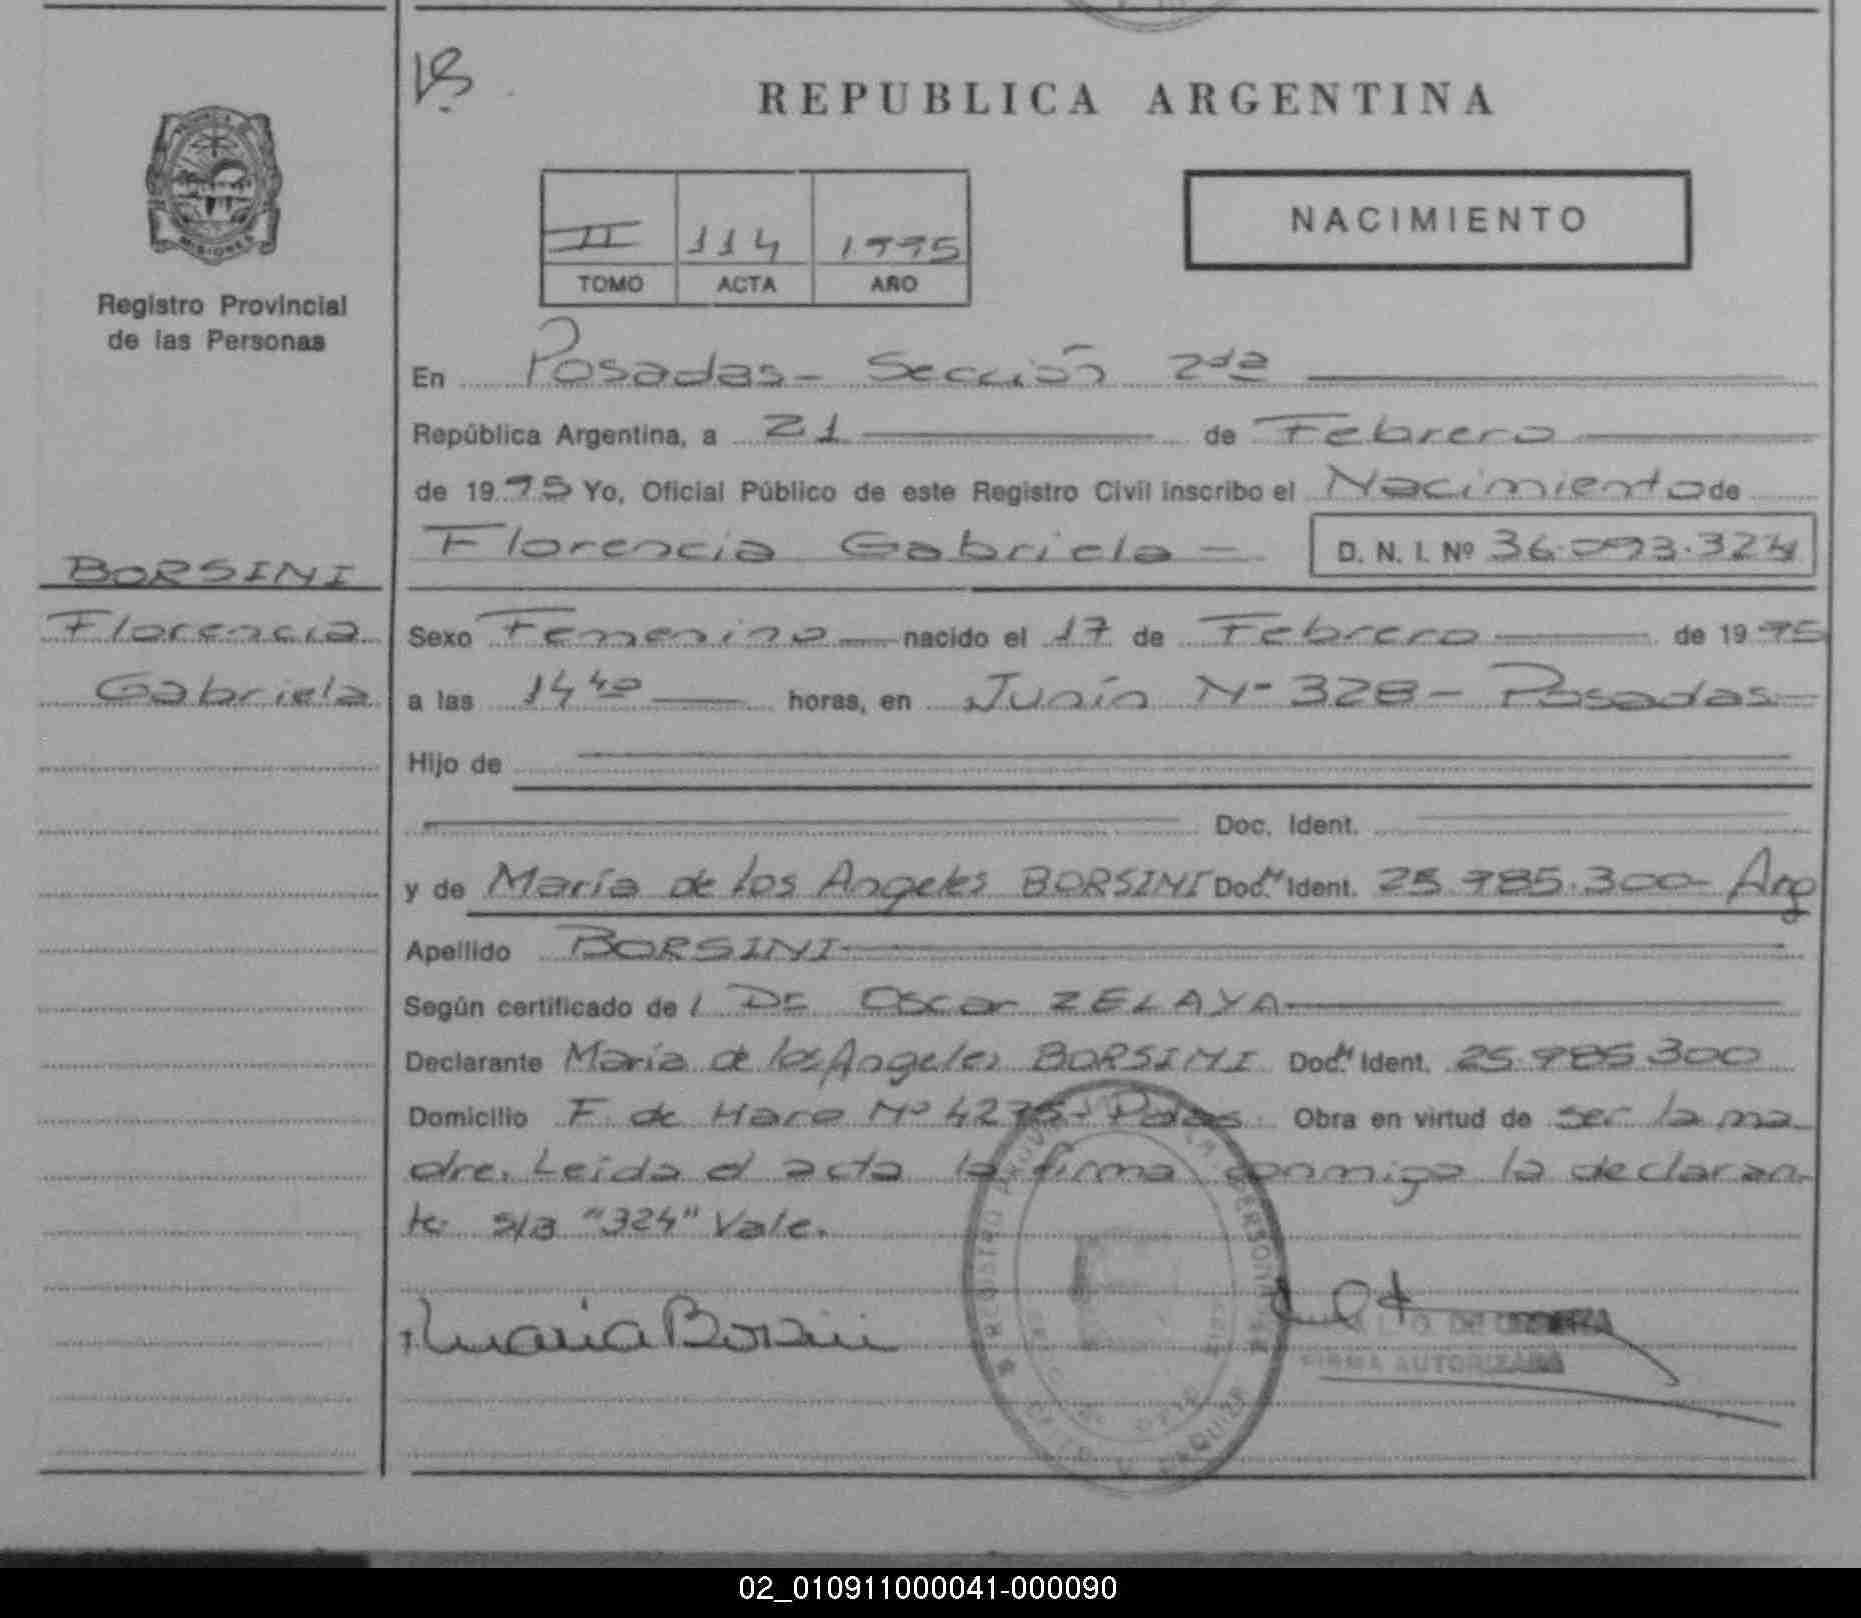 REPUBLICA ARGENTINA
II 114 1995
TOMO ACTA AÑO
NACIMIENTO
MISIONES
Registro Provincial
de las Personas
BORSINI
Florencia
Gabriela
En Posadas - Sección 2da
República Argentina, a 21 de Febrero
de 1995 Yo, Oficial Público de este Registro Civil inscribo el Nacimiento de
Florencia Gabriela - D. N. I. Nº 36.093.324
Sexo Femenino nacido el 17 de Febrero de 1995
a las 14 40 horas, en Junín Nº 328 - Posadas -
Hijo de
Doc. Ident.
y de María de los Angeles BORSINI Doc. Ident. 25.985.300 - Arg
Apellido BORSINI
Según certificado de / Dr Oscar ZELAYA
Declarante María de los Angeles BORSINI Doc. Ident. 25.985.300
Domicilio F. de Haro Nº 4275 - Pdas. Obra en virtud de ser la ma
dre. Leída el acta la firma conmigo la declaran-
te. S/B "324" Vale.
Maria Borsini
FIRMA AUTORIZADA
02_010911000041-000090